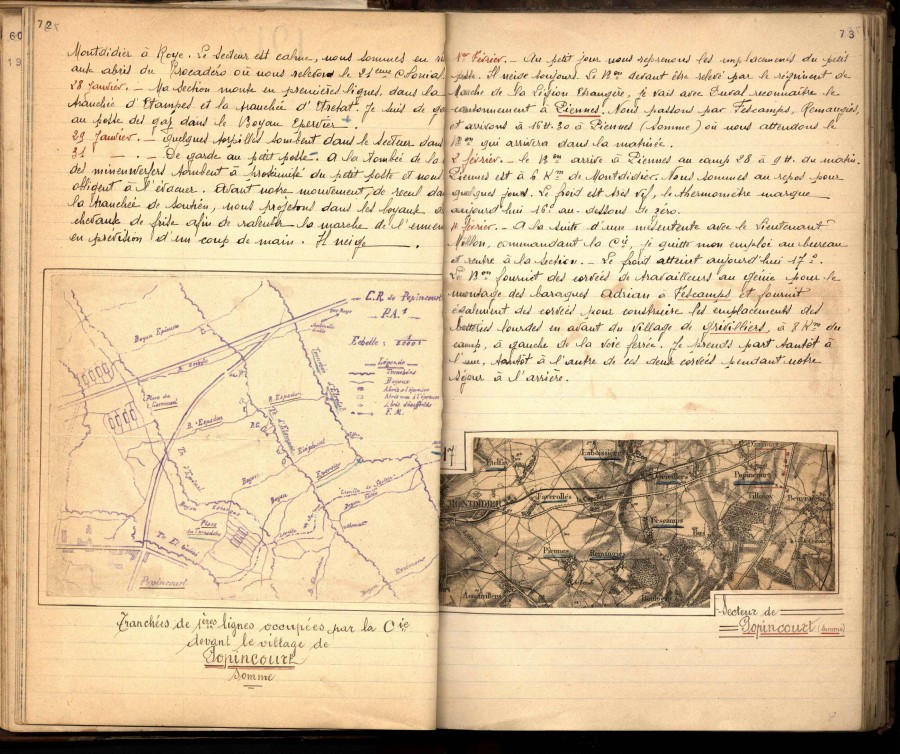 72
Montdidier à Roye. Le secteur est calme, nous sommes en
aux abris du Trocadéro où nous relevons le 21ème Colonial.
28 Janvier. — Ma section monte en premières lignes, dans la
tranchée d'Etampes et la tranchée d'Etretat. Je suis de
au poste des gaz dans le Boyau Epervier.
29 Janvier. — Quelques torpilles tombent dans le secteur dans
31 — . — De garde au petit poste. A la tombée de la
des minenwerfers tombent à proximité du petit poste et nous
obligent à l'évacuer. Avant notre mouvement de recul dans
la tranchée de soutien, nous projetons dans les boyaux
chevaux de frise afin de ralentir la marche de l'ennemi
en prévision d'un coup de main. Il neige.
C.R. de Popincourt
P.A.
Echelle :
Légende
Tranchées
Boyaux
F. M.
Boyau
B. Espadon
B. Espadon
Place du
P.C.
Boyau
Boyau Epervier
Place
du Trocadéro
Popincourt
Tranchées de 1ères lignes occupées par la Cie
devant le village de
Popincourt
Somme
73
1er Février. — Au petit jour nous reprenons les emplacements du petit
poste. Il neige toujours. Le Bon devant être relevé par le régiment de
Marche de la Légion Etrangère, je vais avec Duval reconnaître le
cantonnement à Piennes. Nous passons par Fescamps, Remaugies,
et arrivons à 16H.30 à Piennes (Somme) où nous attendons le
Bon qui arrivera dans la matinée.
2 février. — le Bon arrive à Piennes au camp 28 à 9H. du matin.
Piennes est à 6 Kms de Montdidier. Nous sommes au repos pour
quelques jours. Le froid est très vif, le thermomètre marque
aujourd'hui 16° au-dessous de zéro.
4 février. — A la suite d'une mésentente avec le Lieutenant
commandant la Cie, je quitte mon emploi au bureau
et rentre à la section. — Le froid atteint aujourd'hui 17°.
Le Bon fournit des corvées de travailleurs au génie pour le
montage des baraques Adrian à Fescamps et fournit
également des corvées pour construire les emplacements des
batteries lourdes en avant du village de Grivilliers, à 8 Kms du
camp, à gauche de la voie ferrée. Je prends part tantôt à
l'une, tantôt à l'autre de ces deux corvées pendant notre
séjour à l'arrière.
17
Etelfay
Laboissière
MONTDIDIER
Faverolles
Grivillers
Popincourt
Tilloloy
Beuvraignes
Fescamps
Bus
Piennes
Remaugies
Assainvillers
Boulogne
Secteur de
Popincourt (Somme)